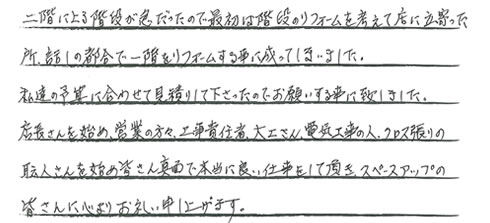 二階による階段が急だったので最初は階段のリフォームを考えて店に立寄った
所、話しの都合で一階をリフォームする事に成ってしまいました。
私達の予算に合わせて見積りして下さったのでお願いする事に致しました。
店長さんを始め、営業の方々、工事責任者、大工さん、電気工事の人、クロス張りの
職人さんを始め皆さん真面で本当に良い仕事をして頂き、スペースアップの
皆さんに心よりお礼い申し上げます。